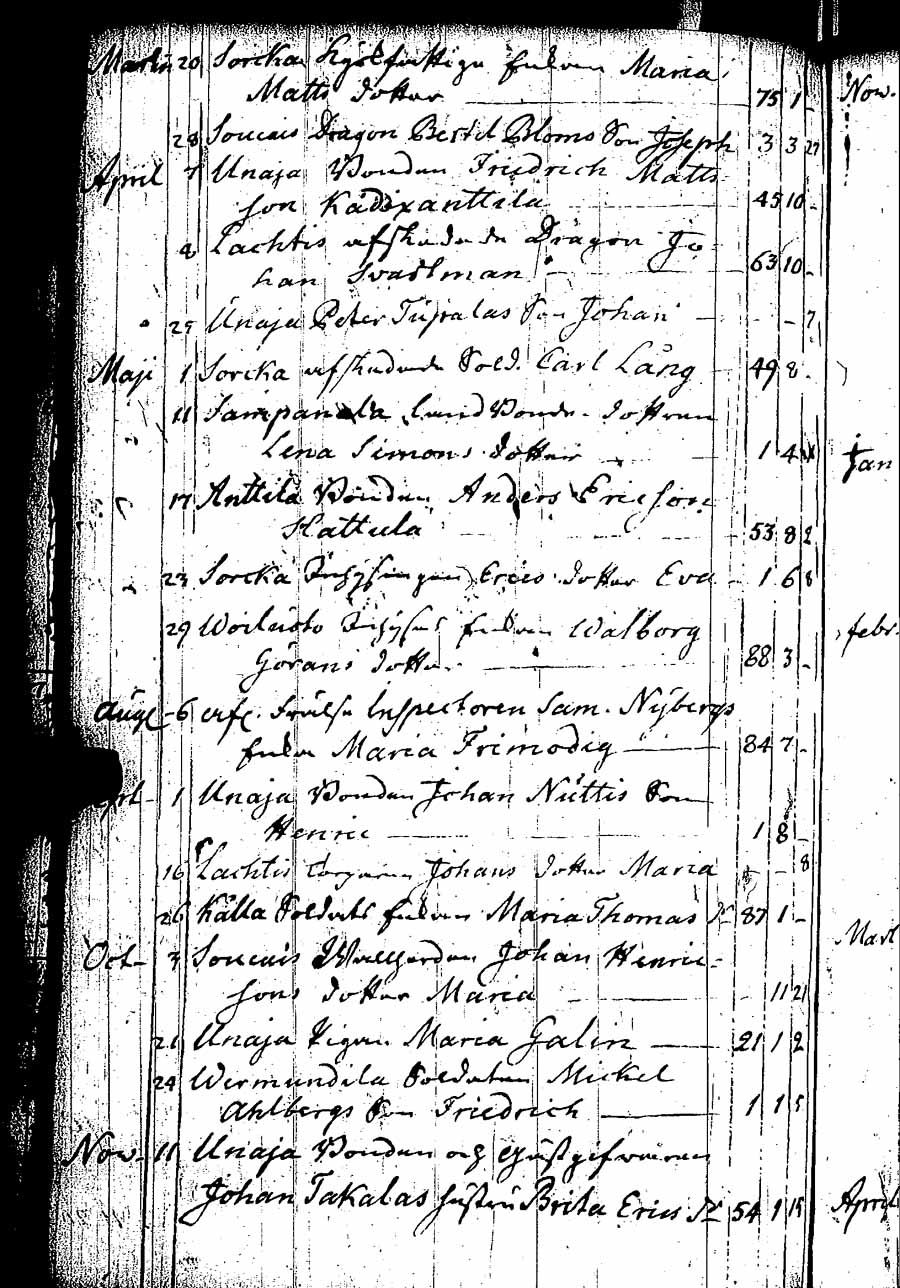 Martii 20 Sorcka Hjelfattige Enkan Maria
Matts dotter 75 1 -
28 Soucais Dragon Bertil Bloms Son Joseph 3 3 27
April 7 Unaja Bondan Friedrich Matts
son Kadixanttila 45 10 -
8 Lachtis afskedade Dragon Jo-
han Svartman 63 10 -
25 Unaja Peter Tupalas Son Johan - - 7
Maji 1 Sorcka afskedade Sold. Carl Lång 49 8 -
11 Sampanala Land Bonde dottren
Lena Simons dotter 1 4
17 Anttila Bondan Anders Ericsson
Hattula 53 8 2
23 Sorcka Inhysingen Erics dotter Eva 1 6 8
29 Woiluoto Inhyses Enkan Walborg
Görans dotter 88 3 -
Aug 6 afl. Frälse Inspectoren Sam. Nybergs
Enka Maria Frimodig 84 7 -
Sept 1 Unaja Bondan Johan Nuttis Son
Henric 1 8 -
16 Lachtis Torparen Johans dotter Maria - - 8
26 Källa Soldats Enkan Maria Thomas Dr 87 1 -
Oct 3 Soucais Johan Henric-
sons dotter Maria 11 21
21 Unaja Pigan Maria Galin 21 1 2
24 Wermundila Soldaten Mickel
Ahlbergs Son Friedrich 1 1 5
Nov 11 Unaja Bondan och Gästgifvaren
Johan Takalas hustru Brita Erics Dr 54 1 15
Nov.
Jan
febr.
Mart
April